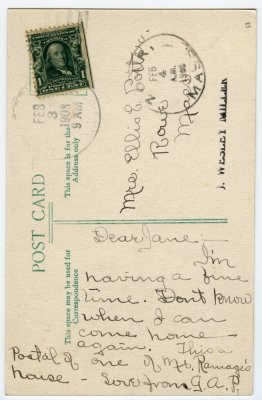 UNITED STATES OF AMERICA
1
FEB
3
1908
9 AM
FEB
4
A.M.
1908
MASS.
Mrs. Ellis C.
Rowe
Mass
J. WESLEY MILLER
POST CARD
This space is for the
Address only
This space may be used for
Correspondence
Dear Jane:—
I'm
having a fine
time. Dont know
when I can
come home
again. This a
Postal of one of Mt.
house — Love from G.A.P.